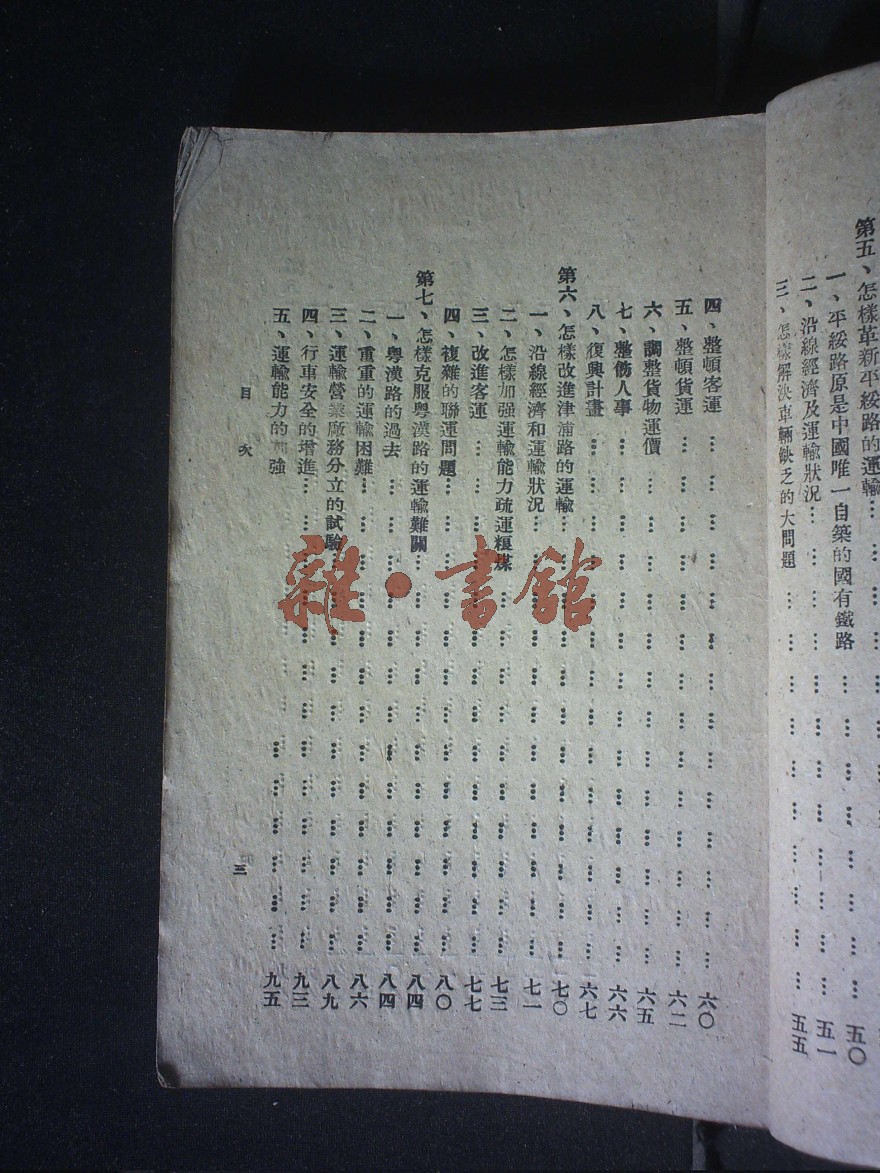 第五、怎樣革新平綏路的運輸
一、平綏路原是中國唯一自築的國有鐵路 五〇
二、沿線經濟及運輸狀況 五一
三、怎樣解決車輛缺乏的大問題 五五
四、整頓客運 六〇
五、整頓貨運 六二
六、調整貨物運價 六五
七、整飭人事 六六
八、復興計畫 六七
第六、怎樣改進津浦路的運輸 七〇
一、沿線經濟和運輸狀況 七一
二、怎樣加强運輸能力疏運糧煤 七三
三、改進客運 七七
四、複雜的聯運問題 八〇
第七、怎樣克服粵漢路的運輸難關 八四
一、粵漢路的過去 八四
二、重重的運輸困難 八六
三、運輸營業廠務分立的試驗 八九
四、行車安全的增進 九三
五、運輸能力的加強 九五
目次
三
雜·書館